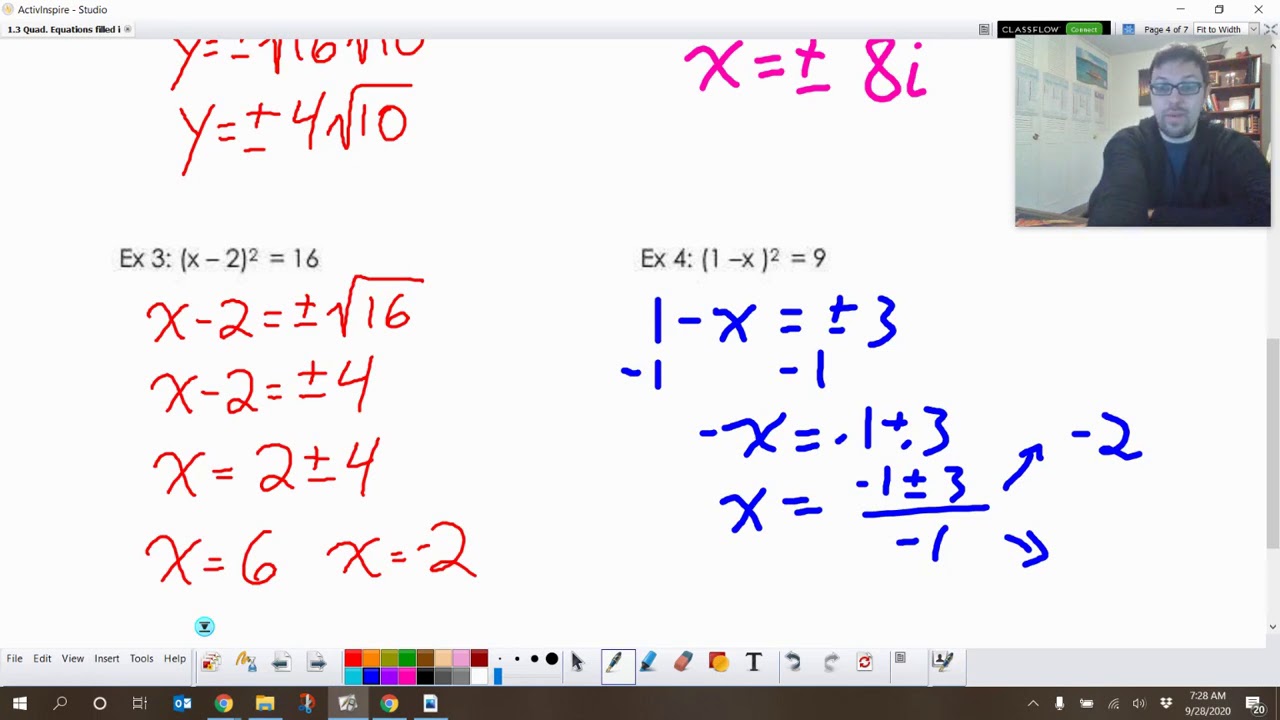 ActivInspire - Studio
1.3 Quad. Equations filled i
CLASSFLOW Connect
Page 4 of 7
Fit to Width
y=±√16√10
y=±4√10
x=± 8i
Ex 3: (x – 2)² = 16
x-2=±√16
x-2=±4
x= 2±4
x=6 x=-2
Ex 4: (1 –x )² = 9
1-x = ±3
-1 -1
-x=-1±3
x= -1±3 / -1
-2
File Edit View Insert Tools Help
T
7:28 AM
9/28/2020
20